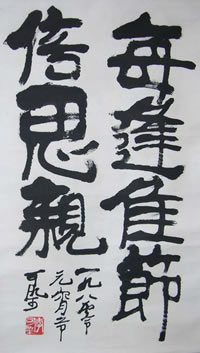 每逢佳節
倍思親
一九八五年
元宵节